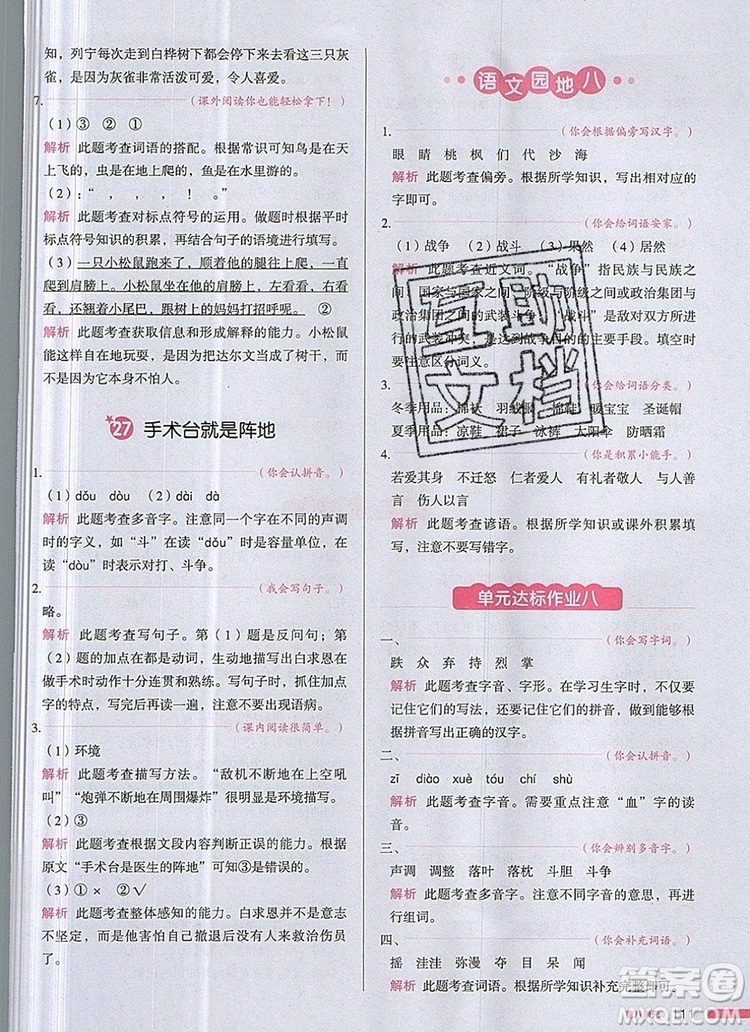 知，列宁每次走到白桦树下都会停下来看这三只灰
雀，是因为灰雀非常活泼可爱，令人喜爱。
7.（课外阅读你也能轻松拿下！）
（1）③　②　①
解析 此题考查词语的搭配。根据常识可知鸟是在天
上飞的，虫是在地上爬的，鱼是在水里游的。
（2）：“　，　，　！。”
解析 此题考查对标点符号的运用。做题时根据平时
标点符号知识的积累，再结合句子的语境进行填写。
（3）一只小松鼠跑来，顺着他的腿往上爬，一直
爬到肩膀上。小松鼠坐在他的肩膀上，左看看，右看
看，还翘着小尾巴，跟树上的妈妈打招呼呢。　②
解析 此题考查获取信息和形成解释的能力。小松鼠
能这样自在地玩耍，是因为把达尔文当成了树干，而
不是因为它本身不怕人。
27 手术台就是阵地
1.（你会认拼音。）
（1）dǒu　dòu　（2）dài　dài
解析 此题考查多音字。注意同一个字在不同的声调
时的字义，如“斗”在读“dǒu”时是一个量词；在
读“dòu”时表示对打、斗争。
2.（我会写句子。）
略。
解析 此题考查写句子。第（1）题是反问句；第
（2）题的加点在都是动词，生动地描写出白求恩在
做手术时动作十分连贯和熟练。写句子时先找到加点
字的特点，写好后再读一遍，注意不要写错别字。
3.（课内阅读很简单。）
（1）环境
解析 此题考查描写方法。“敌机不断地在上空吼
叫”“炮弹不断地在周围爆炸”很明显是环境描写。
（2）③
解析 此题考查根据文段内容判断正误的能力。根据
原文“手术台是医生的阵地”可知③是错误的。
（3）①×　②√
解析 此题考查整体感知的能力。白求恩并不是意志
不坚定，而是由自己撤退后没有来救治伤员联想到
语文园地八
1.（你会根据偏旁写汉字。）
眼　睛　桃　枫　们　代　沙　海
解析 此题考查偏旁。根据所学知识，写出相对应的
字即可。
2.（你会给词语安家。）
（1）战争　（2）战斗　（3）果然　（4）居然
解析 此题考查近义词。“战争”指民族与民族之
间、国家与国家之间、阶级与阶级之间或政治集团与
政治集团之间的武装斗争。“战斗”是敌对双方所进
行的武装冲突，是达到战争目的的主要手段。填空时
要注意区分词义。
3.（你会给词语分类。）
冬季用品：棉袄　羽绒服　棉鞋　暖宝宝　圣诞帽
夏季用品：凉鞋　裙子　泳裤　太阳伞　防晒霜
4.（你是积累小能手。）
若爱其身　不迁怒　仁者爱人　有礼者敬人　与人善
言　伤人以言
解析 此题考查谚语。根据所学知识或课外积累填
写，注意不要写错字。
单元达标作业八
一、（你会写字词。）
跌　众　弃　持　烈　掌
解析 此题考查字音、字形。在学习生字时，不仅要
记住它们的写法，还要记住它们的拼音，这样才能根
据拼音写出正确的汉字。
二、（你会认拼音。）
zī　diào　xuè　tóu　chí　shù
解析 此题考查字音。需要重点注意“血”字的读
音。
三、（你会辨别多音字。）
声调　调整　落叶　落枕　斗胆　斗争
解析 此题考查多音字。根据不同字音的意思，再进
行组词。
四、（你会补充词语。）
摇　洼洼　弥漫　夺目　呆呆　闻
解析 此题考查词语。根据所学知识补充完整即可。
互助
文档
答案圈